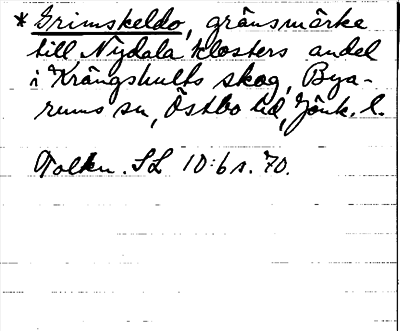 * Grimskeldo, gränsmärke
till Nydala klosters andel
i Krängshults skog, Bya-
rums sn, Östbo hd, Jönk. l.
Tolkn. SL 10:6 s. 70.